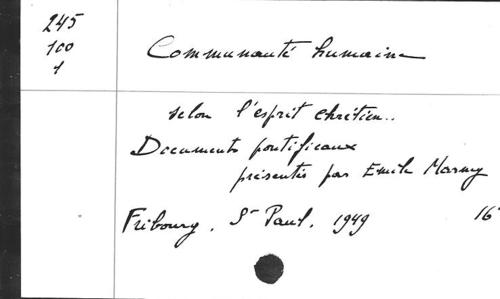 245
100
1
Communauté humaine
selon l'esprit chrétien..
Documents pontificaux
présentés par Emile Marmy
Fribourg, St Paul, 1949 16